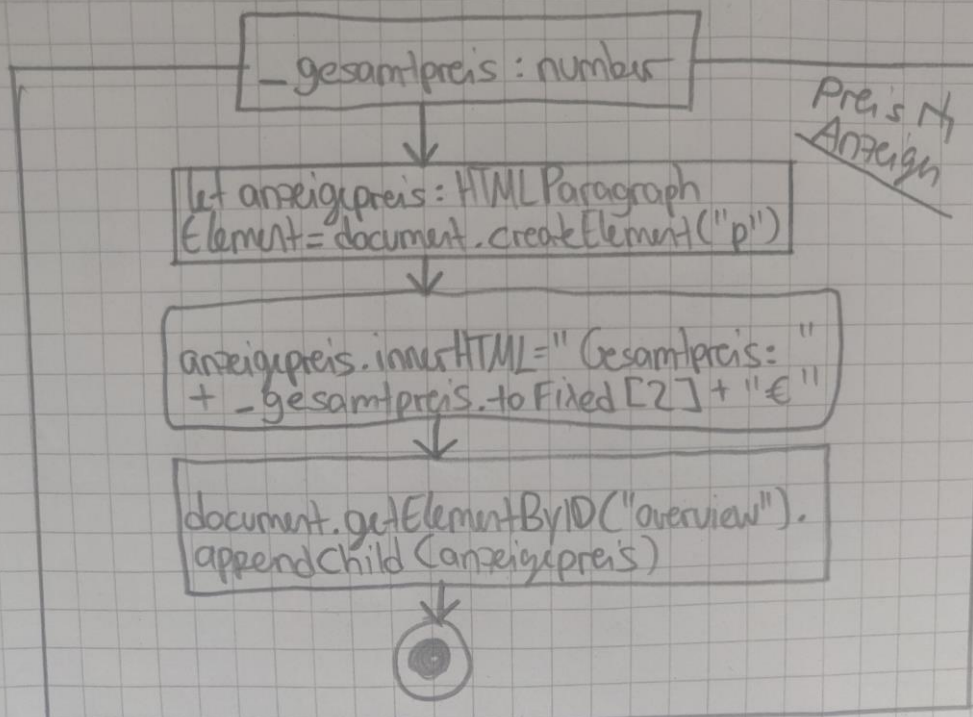 _gesamtpreis: number
Preis
Anzeign
let anzeigepreis: HTMLParagraph
Element= document.createElement("p")
anzeigepreis.innerHTML=" Gesamtpreis: "
+ _gesamtpreis.toFixed[2] + "€"
document.getElementByID("overview").
appendChild(anzeigepreis)